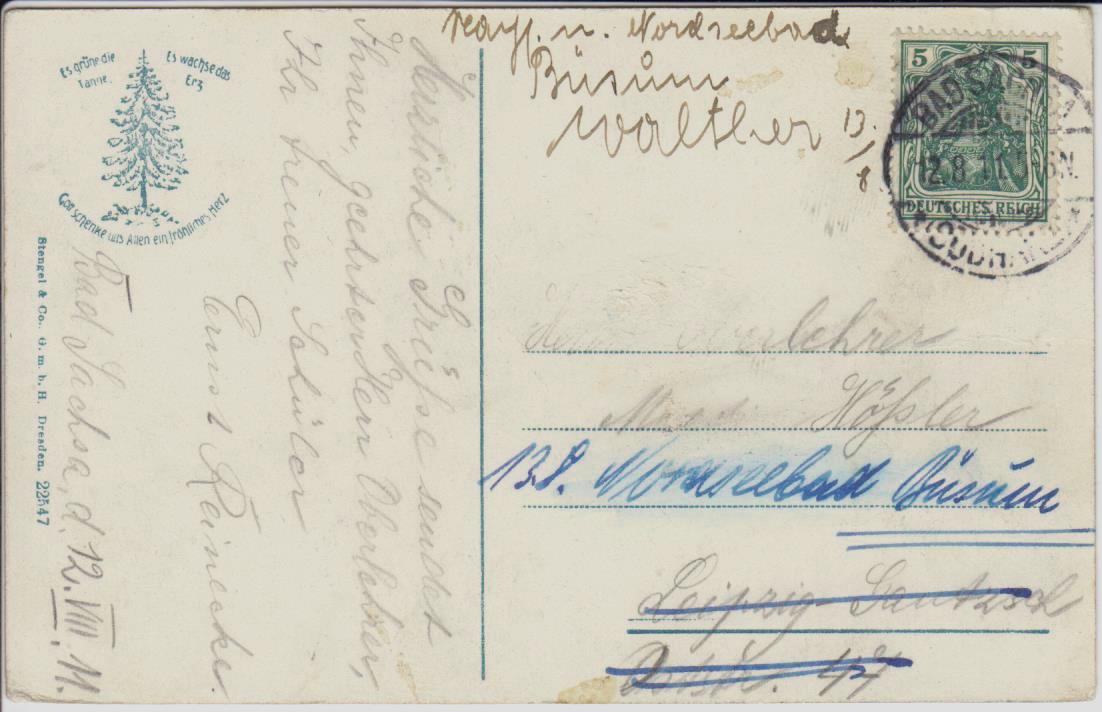 Es grüne die
Tanne.
Es wachse das
Erz
Gott schenke uns Allen ein fröhliches Herz
Stengel & Co. G. m. b. H. Dresden. 22547
Bad Sachsa, d. 12. VIII. 11.
Herzliche Grüße sendet
Ihnen, geehrten Herr Oberlehrer,
Ihr treuer Schüler
Ernst Reinecke.
n. Nordseebad
Büsum
Walther 13./8
5 5
DEUTSCHES REICH
BAD SACHSA
12.8.11. N.
(SÜDHARZ)
Herrn Oberlehrer
Hößler
13.8. Nordseebad Büsum
Leipzig Gautzsch
47